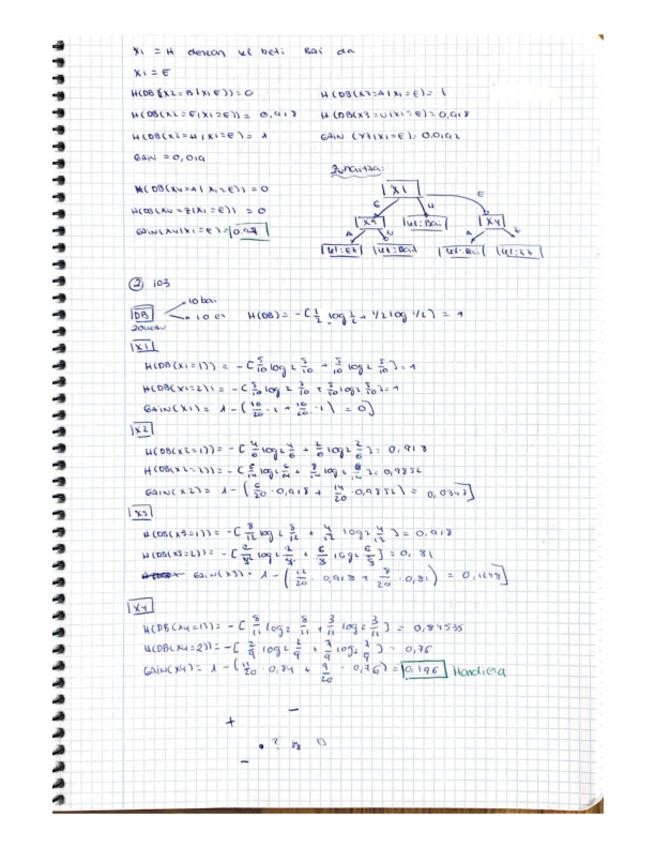 X1 = H denean kl beti Bai da
X1 = E
H(DB(X2=B|X1=E))=0
H(DB(X2=E|X1=E)) = 0,918
H(DB(X2=H|X1=E)) = 1
GAIN = 0,019
H(DB(X3=A|X1=E)) = 1
H(DB(X3=U|X1=E)) = 0,918
GAIN (X3|X1=E) = 0,0192
H(DB(X4=A|X1=E)) = 0
H(DB(X4=Z|X1=E)) = 0
GAIN(X4|X1=E) =
Zuhaitza:
X1
E
H
X3
kl:Bai
X4
A
U
A
Z
kl:Ez
kl:Bai
kl:Bai
kl:Ez
② 103
DB
10 bai
10 ez
H(DB) = -[1/2 log 1/2 + 1/2 log 1/2] = 1
X1
H(DB(X1=1)) = -[5/10 log2 5/10 + 5/10 log2 5/10] = 1
H(DB(X1=2)) = -[5/10 log2 5/10 + 5/10 log2 5/10] = 1
GAIN(X1) = 1 - (10/20 · 1 + 10/20 · 1) = 0]
X2
H(DB(X2=1)) = -[4/6 log2 4/6 + 2/6 log2 2/6] = 0,918
H(DB(X2=2)) = -[6/14 log2 6/14 + 8/14 log2 8/14] = 0,9852
GAIN(X2) = 1 - (6/20 · 0,918 + 14/20 · 0,9852) = 0,0349]
X3
H(DB(X3=1)) = -[8/12 log2 8/12 + 4/12 log2 4/12] = 0,918
H(DB(X3=2)) = -[2/8 log2 2/8 + 6/8 log2 6/8] = 0,81
GAIN(X3) = 1 - (12/20 · 0,918 + 8/20 · 0,81) =
X4
H(DB(X4=1)) = -[8/11 log2 8/11 + 3/11 log2 3/11] = 0,84535
H(DB(X4=2)) = -[2/9 log2 2/9 + 7/9 log2 7/9] = 0,76
GAIN(X4) = 1 - (11/20 · 0,84 + 9/20 · 0,76) = 0,196 Handiena
+ −
−